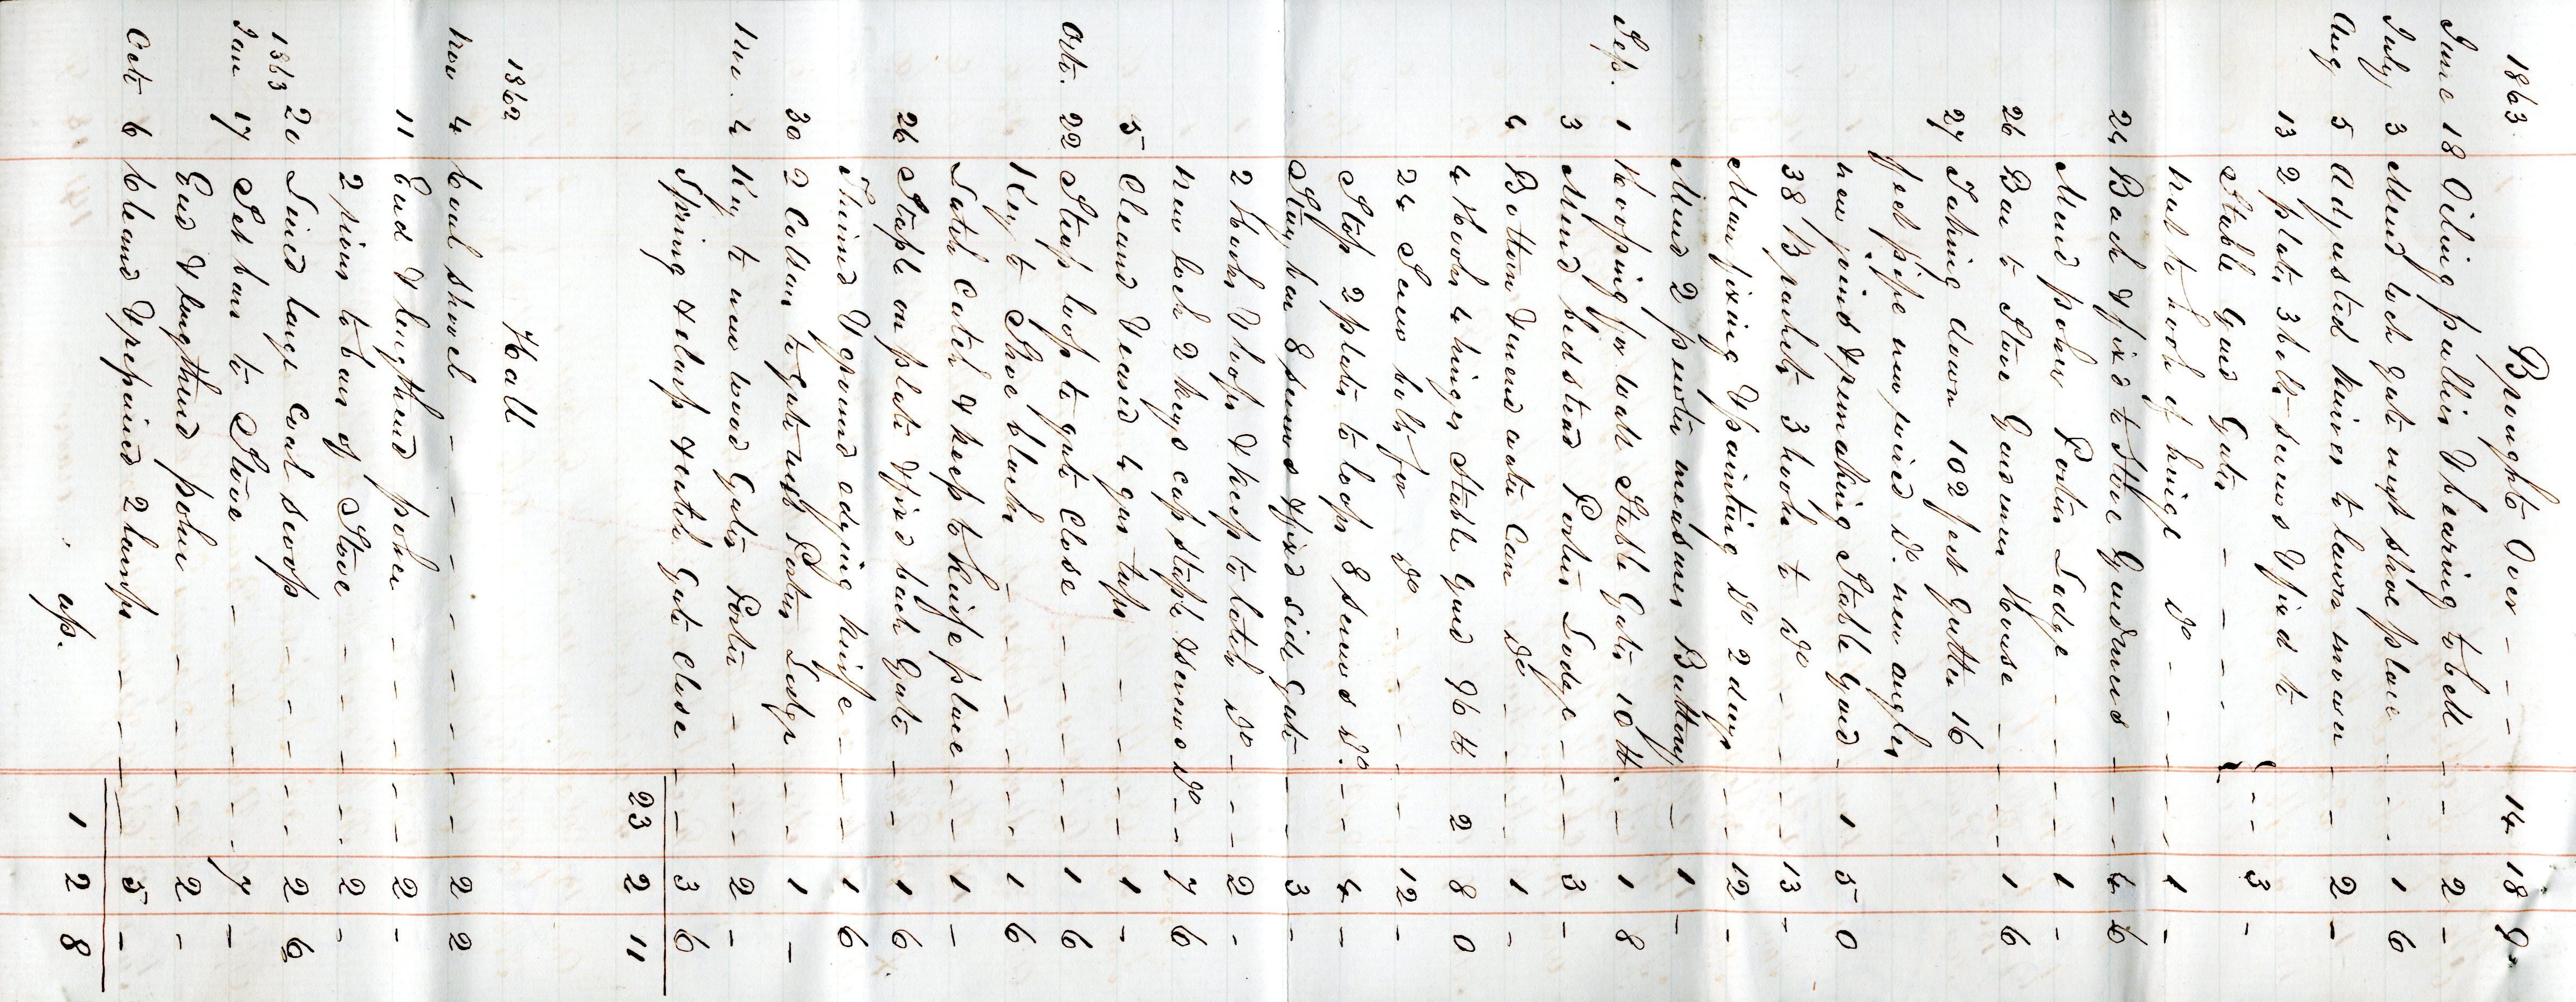 1863. Brought Over - - - 14 18 9
June 18 Oiling pullies & bearing to bell - - 2 -
July 3 Mend lock Gate next shoe place - - 1 6
Aug 5 Adjusted knives to lawn mower - - 2 -
13 2 plates 3 bolts screws & fixd to
Stable Yard Gates - - - - 3 -
Nut to hook of hinge Do - - - 1 -
24 Back & fixd to Stove Gardeners - - 4 6
Mend poker Porters Lodge - - - 1 -
26 Bar to Stove Gardeners House - - 1 6
27 Taking down 102 feet Gutter 16
feet pipe new wired Do new angles
new joind & remaking Stable Yard - 1 5 0
38 Brackets 3 hooks to Do - - 13 -
Man fixing & painting Do 2 days - 12 -
Mend 2 pewter measures Buttery - 1 -
Sep. 1 Hooping for wood Stable Gates 10 lb. - 1 8
3 Mend bedstead Porters Lodge - - 3 -
4 Bottom & mend Can Do - - 1 -
4 Hooks 4 hinges Stable Yard 96 lb 2 8 0
24 Screw bolts for Do - - - 12 -
Stap 2 plates to loops 8 screws Do - - 4 -
Stay bar 8 screws & fixd side Gate - 3 -
2 Hooks & loops & keep to latch Do - - 2 -
New lock 2 keys cap staple & screws Do - - 7 6
5 Cleand & eased 4 gas taps - - - 1 -
Octr. 22 Strap loop to gate Close - - - 1 6
Key to Shoe blacks - - - - 1 6
Latch Catch & keep to knife place - - 1 -
26 Staple on plate & fixd back Gate - - 1 6
Thined & ground edging knife - - 1 6
30 2 Collars to gate next Porters Lodge - - 1 -
Nov. 4 Key to new wood Gates Porter - - - 2 -
Spring & clasp & catch Gate Close - 3 6
23 2 11
1862 Hall
Nov 4 Coal shovel - - - - - - 2 2
11 End & lengthend poker - - - - 2 -
2 pieces to bars of Stove - - - - 2 -
20 Lined large Coal scoop - - - - 2 6
1863
Jan 17 Set bars to Stove - - - - 7 -
End & lengthend poker - - - - 2 -
Octr 6 Cleand & repaired 2 lamps - - - 5 -
1 2 8